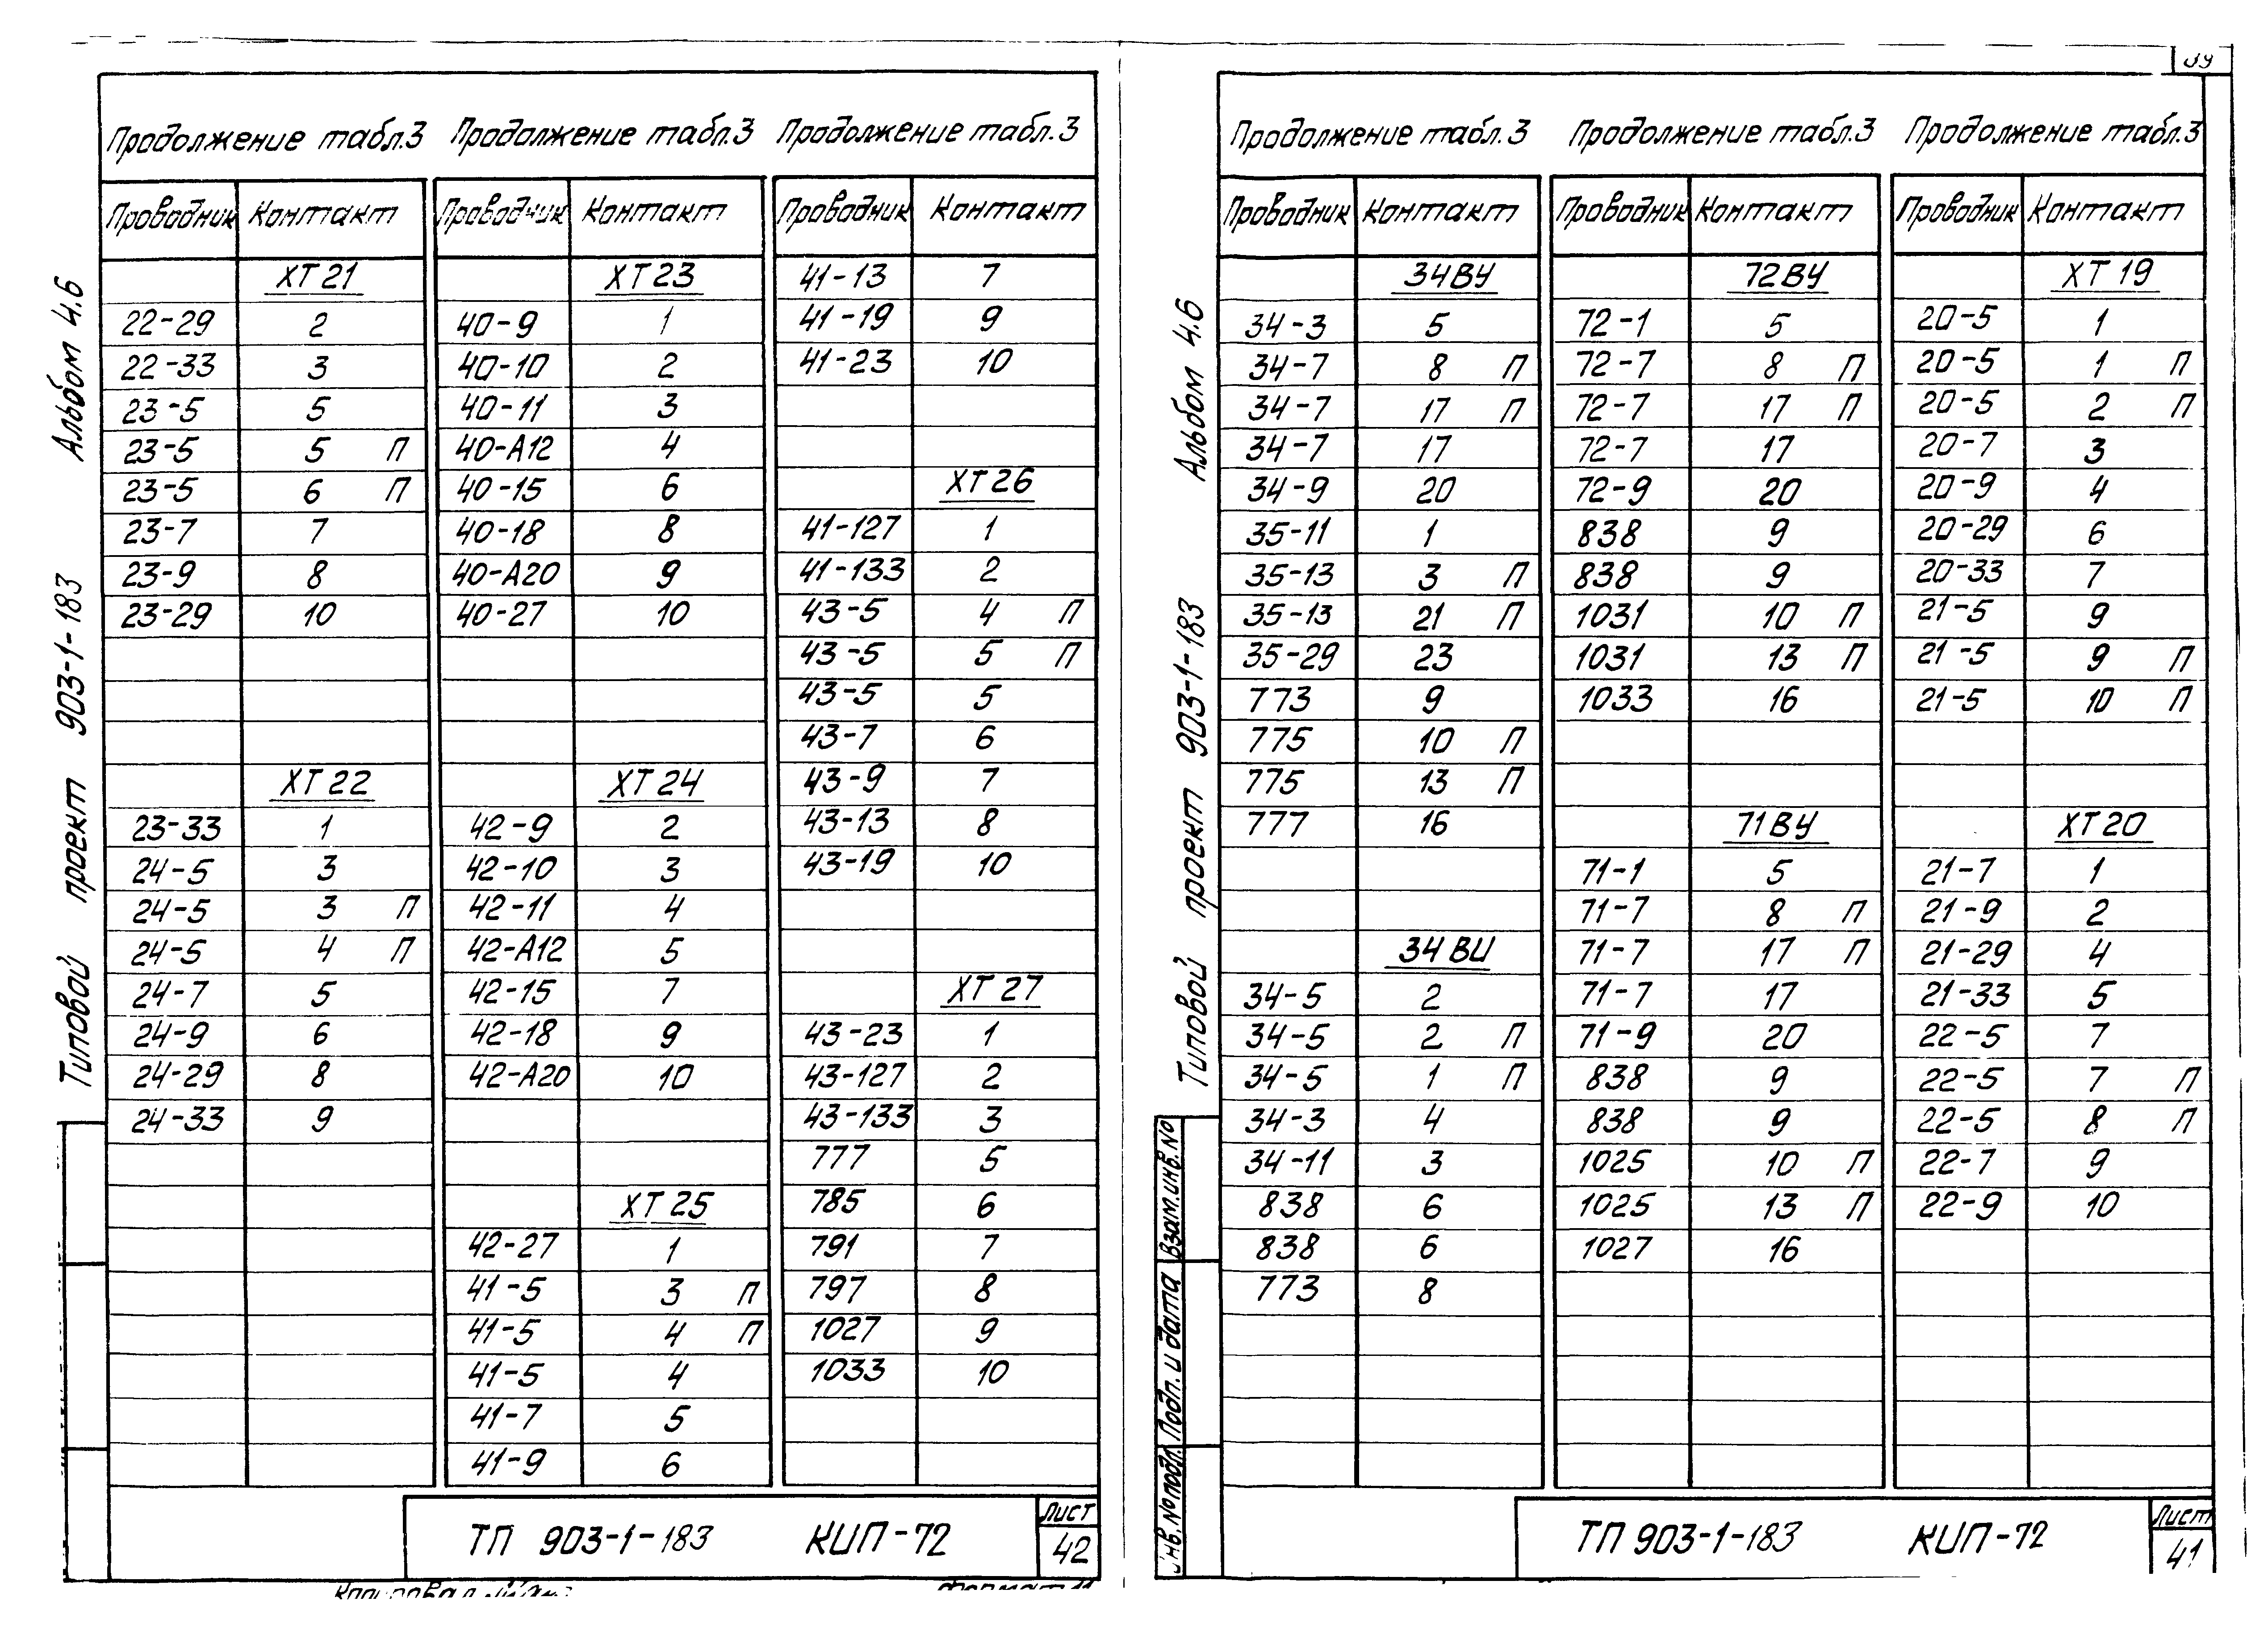 Альбом 4.6
Типовой проект 903-1-183
Продолжение табл.3 Продолжение табл.3 Продолжение табл.3
Проводник Контакт Проводник Контакт Проводник Контакт
ХТ 21 ХТ 23 41-13 7
22-29 2 40-9 1 41-19 9
22-33 3 40-10 2 41-23 10
23-5 5 40-11 3
23-5 5 П 40-А12 4
23-5 6 П 40-15 6 ХТ 26
23-7 7 40-18 8 41-127 1
23-9 8 40-А20 9 41-133 2
23-29 10 40-27 10 43-5 4 П
43-5 5 П
43-5 5
43-7 6
ХТ 22 ХТ 24 43-9 7
23-33 1 42-9 2 43-13 8
24-5 3 42-10 3 43-19 10
24-5 3 П 42-11 4
24-5 4 П 42-А12 5
24-7 5 42-15 7 ХТ 27
24-9 6 42-18 9 43-23 1
24-29 8 42-А20 10 43-127 2
24-33 9 43-133 3
777 5
ХТ 25 785 6
42-27 1 791 7
41-5 3 П 797 8
41-5 4 П 1027 9
41-5 4 1033 10
41-7 5
41-9 6
ТП 903-1-183 КИП-72
Лист
42
39
Альбом 4.6
Типовой проект 903-1-183
Продолжение табл.3 Продолжение табл.3 Продолжение табл.3
Проводник Контакт Проводник Контакт Проводник Контакт
34ВУ 72ВУ ХТ 19
34-3 5 72-1 5 20-5 1
34-7 8 П 72-7 8 П 20-5 1 П
34-7 17 П 72-7 17 П 20-5 2 П
34-7 17 72-7 17 20-7 3
34-9 20 72-9 20 20-9 4
35-11 1 838 9 20-29 6
35-13 3 П 838 9 20-33 7
35-13 21 П 1031 10 П 21-5 9
35-29 23 1031 13 П 21-5 9 П
773 9 1033 16 21-5 10 П
775 10 П
775 13 П
777 16 71ВУ ХТ 20
71-1 5 21-7 1
71-7 8 П 21-9 2
34 ВИ 71-7 17 П 21-29 4
34-5 2 71-7 17 21-33 5
34-5 2 П 71-9 20 22-5 7
34-5 1 П 838 9 22-5 7 П
34-3 4 838 9 22-5 8 П
34-11 3 1025 10 П 22-7 9
838 6 1025 13 П 22-9 10
838 6 1027 16
773 8
Взам.инв.№
Подп. и дата
Инв.№ подл.
ТП 903-1-183 КИП-72
Лист
41